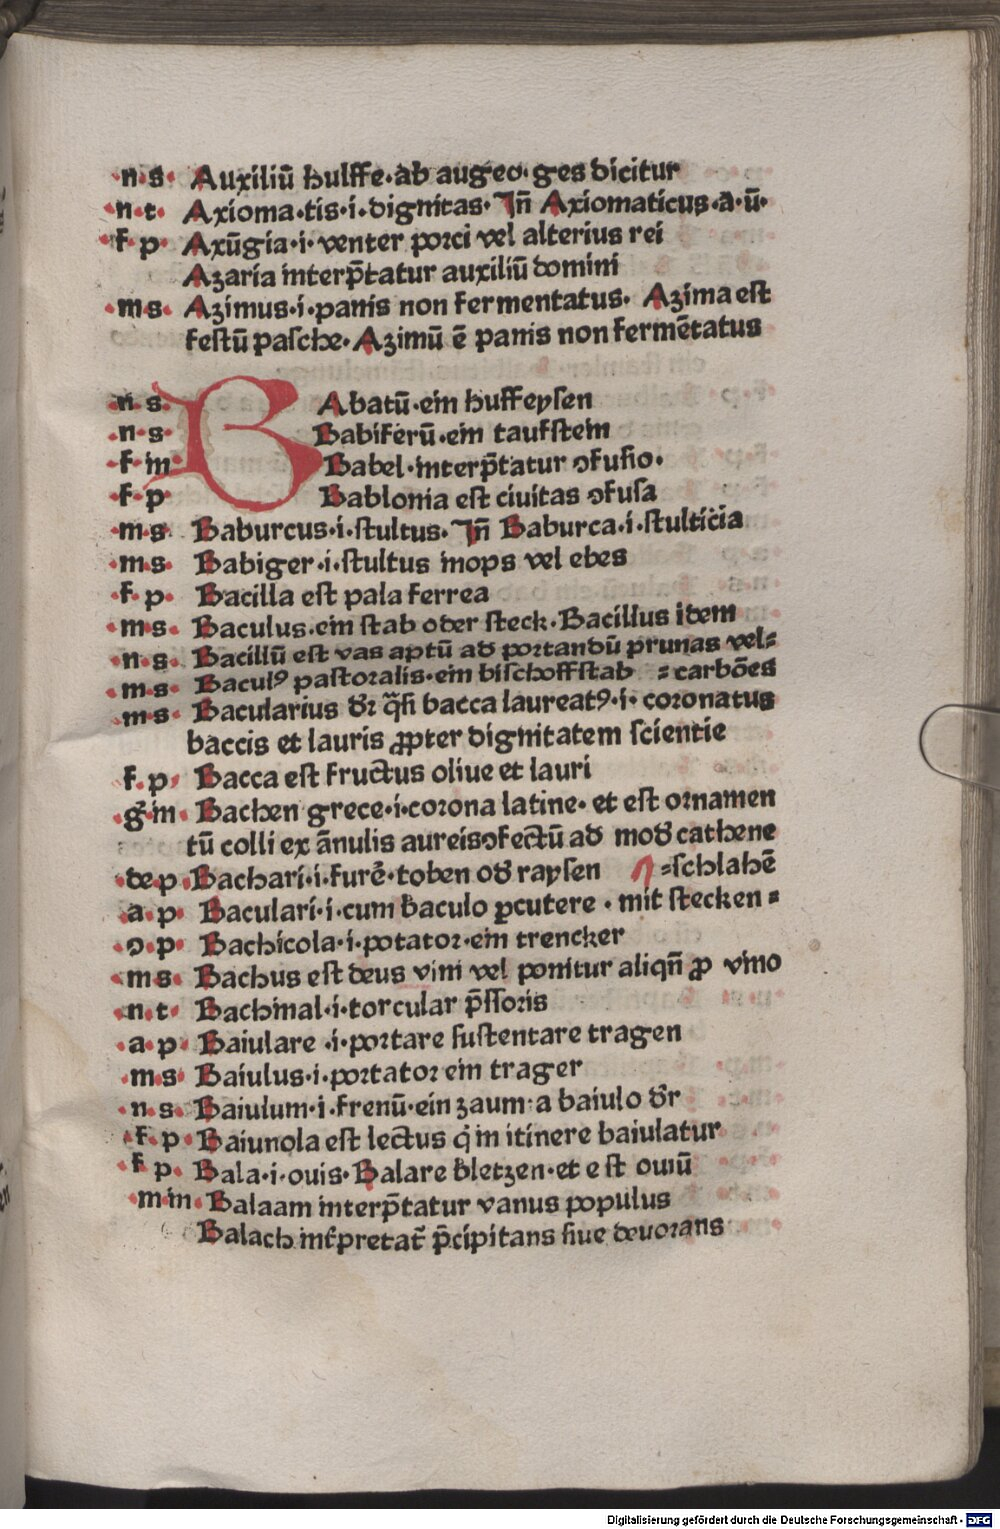 ·n·s· Auxiliū hulffe·ab augeo·ges dicitur
·n·t· Axioma·tis·i·dignitas·Jn̄ Axiomaticus·a·ū·
·f·p· Axūgia·i·venter porci vel alterius rei
Azaria interp̄tatur auxiliū domini
·m·s· Azimus·i·panis non fermentatus· Azima est
festū pasche·Azimū ē panis non fermētatus
·n·s· BAbatū·ein huffeysen
·n·s· Babiferū·ein taufstein
·f·m· Babel·interp̄tatur ↄfusio·
·f·p· Bablonia est ciuitas ↄfusa
·m·s· Baburcus·i·stultus·Jn̄ Baburca·i·stulticia
·m·s· Babiger·i·stultus inops vel ebes
·f·p· Bacilla est pala ferrea
·m·s· Baculus·ein stab oder steck·Bacillus idem
·n·s· Bacillū est vas aptū ad portandū prunas vel⸗
·m·s· Baculꝰ pastoralis·ein bischoffstab ⸗carbōes
·m·s· Bacularius dr̄ q̄si bacca laureatꝰ·i·coronatus
baccis et lauris ꝓpter dignitatem scientie
f·p· Bacca est fructus oliue et lauri
·g̅·m· Bachen grece·i·corona latine·et est ornamen
tū colli ex ānulis aureis ↄfectū ad mod̄ cathene
·de p· Bachari·i·furē·toben od̄ raysen ⸗schlahē
·a·p· Baculari·i·cum baculo ꝑcutere·mit stecken⸗
·ↄ·p· Bachicola·i·potator·ein trencker
·m·s· Bachus est deus vini vel ponitur aliqn̄ ꝓ vino
·n·t· Bachinal·i·torcular p̄ssoris
·a·p· Baiulare·i·portare sustentare tragen
·m·s· Baiulus·i·portator ein trager
·n·s· Baiulum·i·frenū·ein zaum·a baiulo dr̄
·f·p· Baiunola est lectus q̇ in itinere baiulatur
·f·p· Bala·i·ouis·Balare bletzen·et est ouiū
·m·m· Balaam interp̄tatur vanus populus
Balach inťpretat̄ p̄cipitans siue deuorans
Digitalisierung gefördert durch die Deutsche Forschungsgemeinschaft - DFG